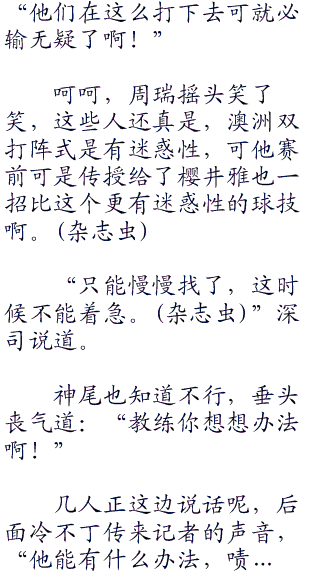 “他们在这么打下去可就必
输无疑了啊！”
呵呵，周瑞摇头笑了
笑，这些人还真是，澳洲双
打阵式是有迷惑性，可他赛
前可是传授给了樱井雅也一
招比这个更有迷惑性的球技
啊。(杂志虫)
“只能慢慢找了，这时
候不能着急。(杂志虫)”深
司说道。
神尾也知道不行，垂头
丧气道：“教练你想想办法
啊！”
几人正这边说话呢，后
面冷不丁传来记者的声音，
“他能有什么办法，啧...